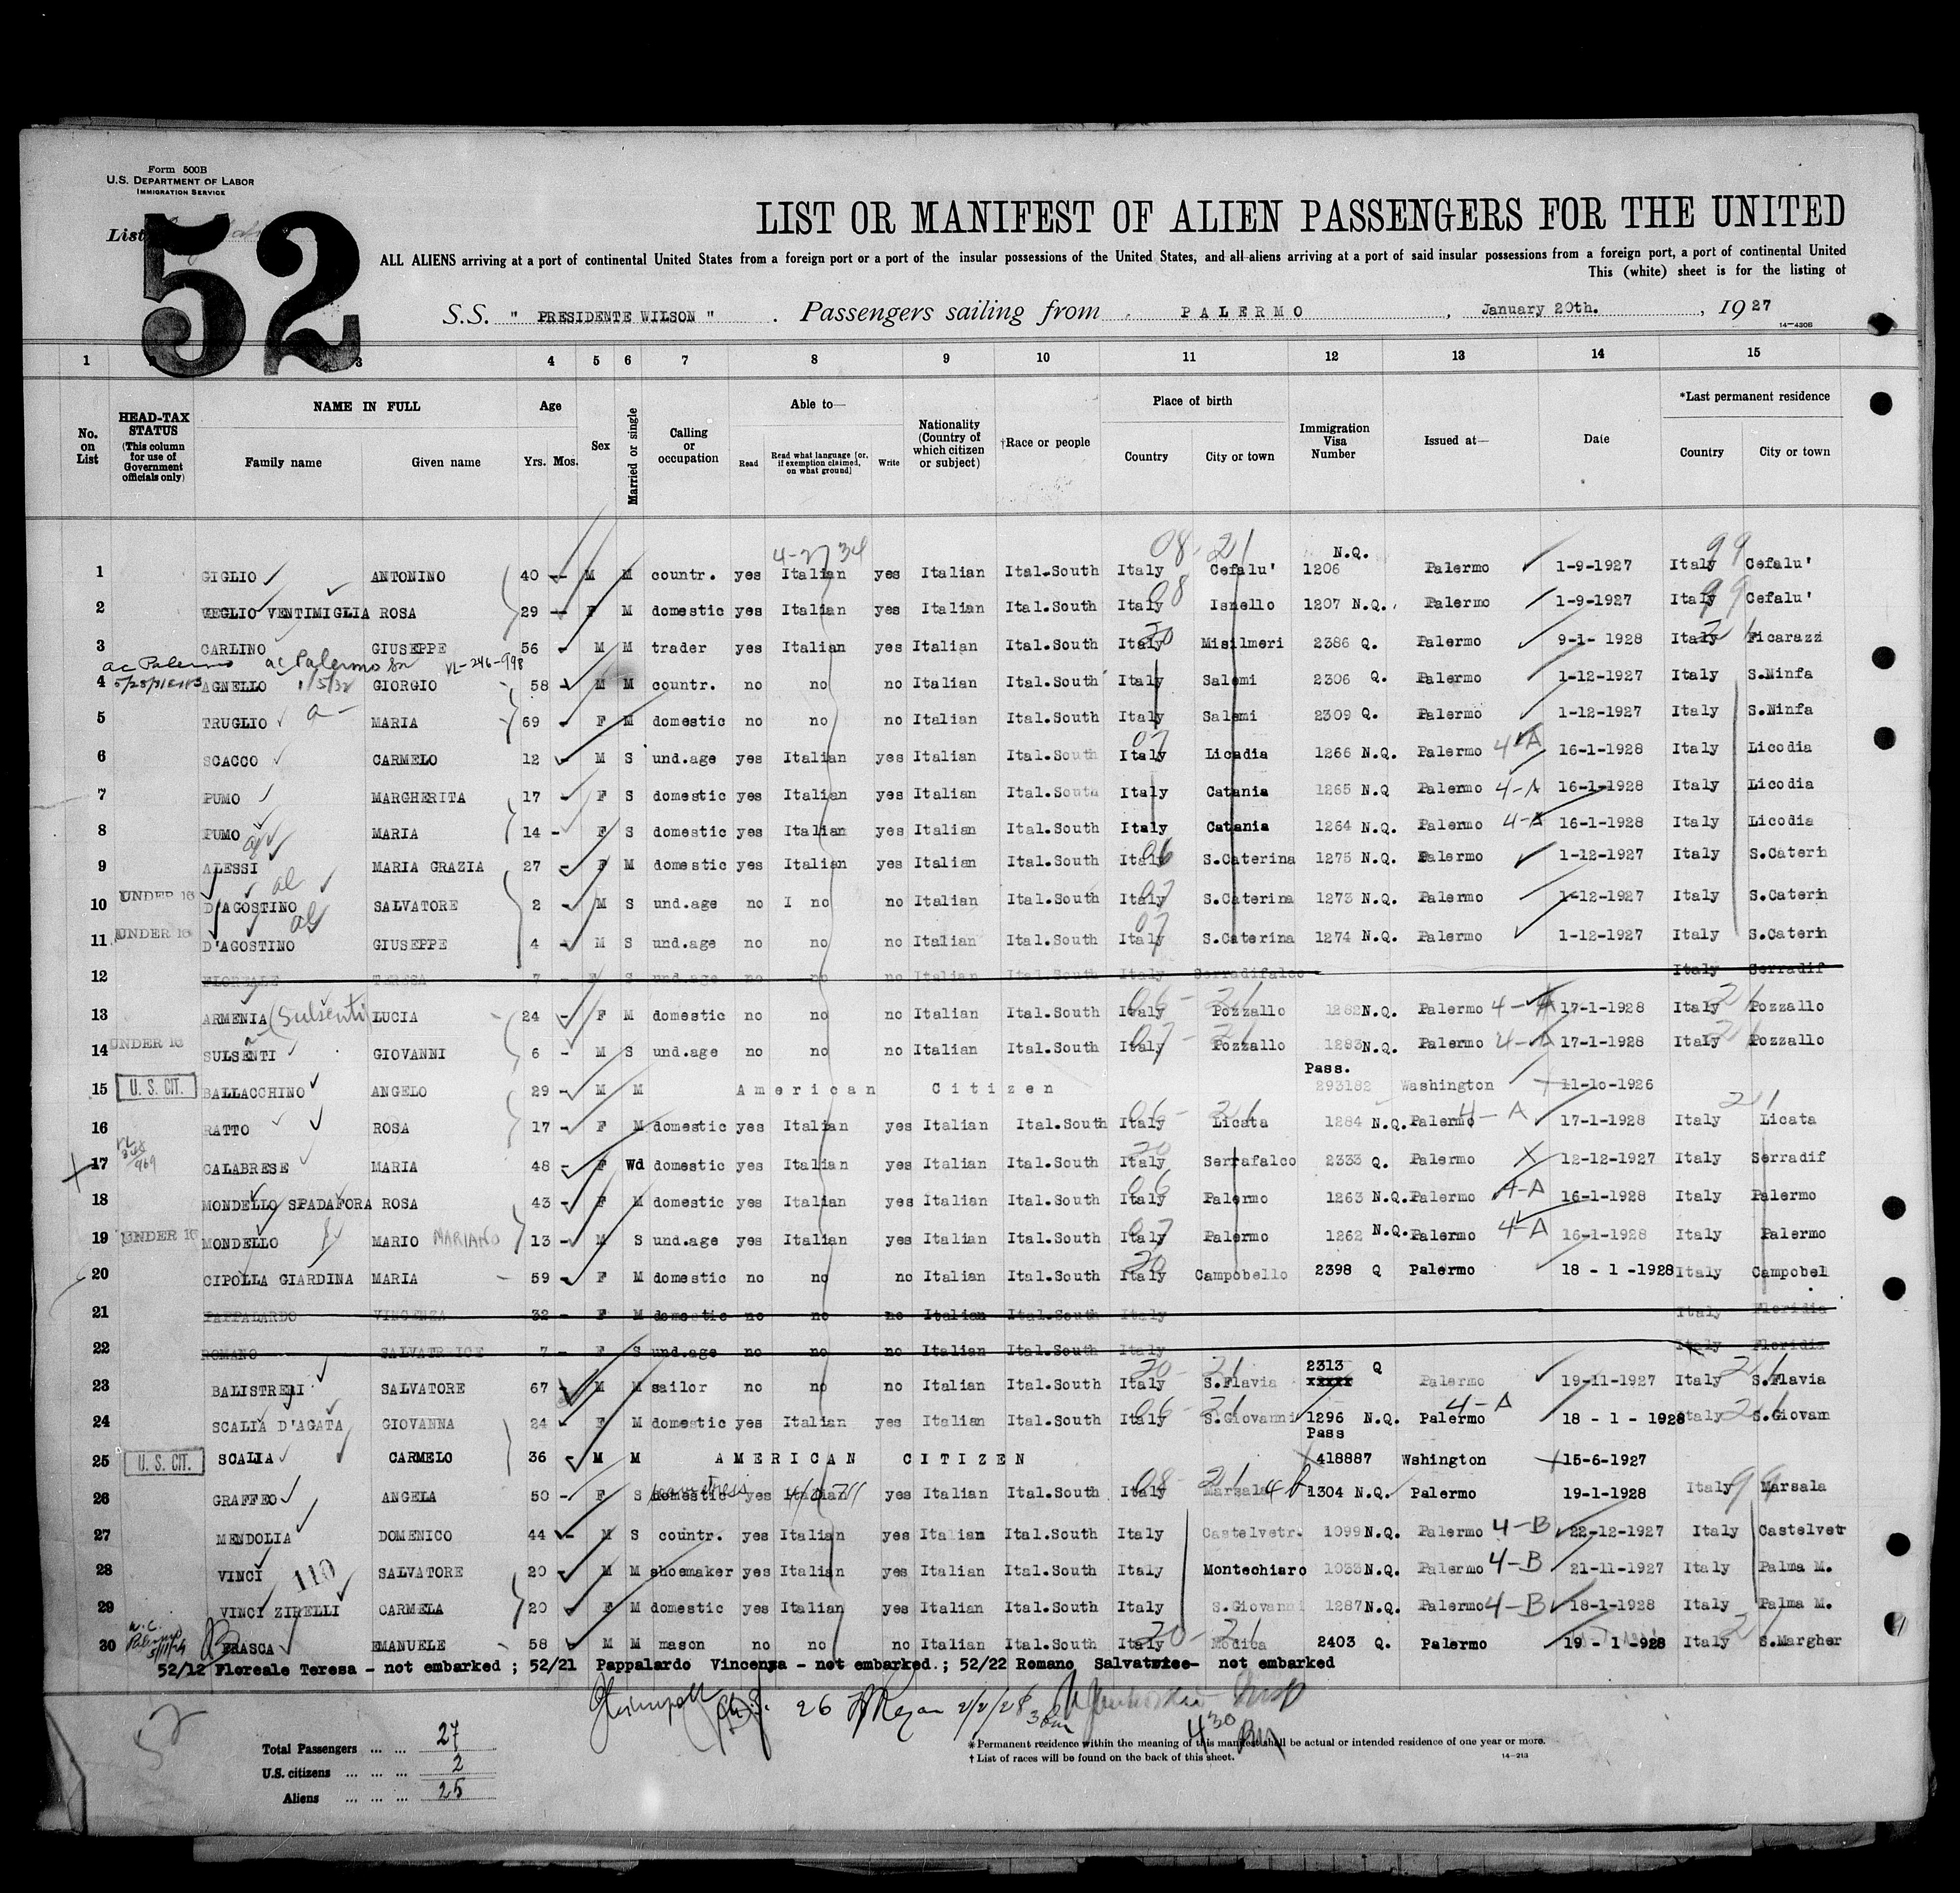 Form 500B
U.S. DEPARTMENT OF LABOR
IMMIGRATION SERVICE
List
52
LIST OR MANIFEST OF ALIEN PASSENGERS FOR THE UNITED
ALL ALIENS arriving at a port of continental United States from a foreign port or a port of the insular possessions of the United States, and all aliens arriving at a port of said insular possessions from a foreign port, a port of continental United
This (white) sheet is for the listing of
S.S. " PRESIDENTE WILSON " . Passengers sailing from PALERMO , January 20th. , 1927
14—430B
1 3 4 5 6 7 8 9 10 11 12 13 14 15
No. on List
HEAD-TAX STATUS (This column for use of Government officials only)
NAME IN FULL
Family name Given name
Age
Yrs. Mos.
Sex
Married or single
Calling or occupation
Able to—
Read Read what language [or, if exemption claimed, on what ground] Write
Nationality (Country of which citizen or subject)
†Race or people
Place of birth
Country City or town
Immigration Visa Number
Issued at—
Date
*Last permanent residence
Country City or town
4-2734 08-21 99
1 GIGLIO ANTONINO 40 M M countr. yes Italian yes Italian Ital.South Italy Cefalu' N.Q. 1206 Palermo 1-9-1927 Italy Cefalu'
2 VEGLIO VENTIMIGLIA ROSA 29 F M domestic yes Italian yes Italian Ital.South Italy Isnello 1207 N.Q. Palermo 1-9-1927 Italy Cefalu'
3 CARLINO GIUSEPPE 56 M M trader yes Italian yes Italian Ital.South Italy Misilmeri 2386 Q. Palermo 9-1- 1928 Italy Ficarazzi
ac Palermo ac Palermo VL-246-998
4 AGNELLO 1/5/32 GIORGIO 58 M M countr. no no no Italian Ital.South Italy Salemi 2306 Q. Palermo 1-12-1927 Italy S.Ninfa
5 TRUGLIO MARIA 69 F M domestic no no no Italian Ital.South Italy Salemi 2309 Q. Palermo 1-12-1927 Italy S.Ninfa
6 SCACCO CARMELO 12 M S und.age yes Italian yes Italian Ital.South Italy Licadia 1266 N.Q. Palermo 4-A 16-1-1928 Italy Licodia
7 PUMO MARGHERITA 17 F S domestic yes Italian yes Italian Ital.South Italy Catania 1265 N.Q Palermo 4-A 16-1-1928 Italy Licodia
8 PUMO MARIA 14 F S domestic yes Italian yes Italian Ital.South Italy Catania 1264 N.Q. Palermo 4-A 16-1-1928 Italy Licodia
9 ALESSI MARIA GRAZIA 27 F M domestic yes Italian yes Italian Ital.South Italy S.Caterina 1275 N.Q. Palermo 1-12-1927 Italy S.Caterin
10 UNDER 16 D'AGOSTINO SALVATORE 2 M S und.age no I no no Italian Ital.South Italy S.Caterina 1273 N.Q. Palermo 1-12-1927 Italy S.Caterin
11 UNDER 16 D'AGOSTINO GIUSEPPE 4 M S und.age no no no Italian Ital.South Italy S.Caterina 1274 N.Q. Palermo 1-12-1927 Italy S.Caterin
12 FLOREALE TERESA 7 F S und.age no no no Italian Ital.South Italy Serradifalco Italy Serradif
13 ARMENIA (Sulsenti) LUCIA 24 F M domestic no no no Italian Ital.South Italy Pozzallo 1282 N.Q. Palermo 4-A 17-1-1928 Italy Pozzallo
14 UNDER 16 SULSENTI GIOVANNI 6 M S und.age no no no Italian Ital.South Italy Pozzallo 1283 N.Q. Palermo 4-A 17-1-1928 Italy Pozzallo
15 U. S. CIT. BALLACCHINO ANGELO 29 M M American Citizen Pass. 293182 Washington 11-10-1926
16 RATTO ROSA 17 F M domestic yes Italian yes Italian Ital.South Italy Licata 1284 N.Q. Palermo 4-A 17-1-1928 Italy Licata
17 CALABRESE MARIA 48 F Wd domestic yes Italian yes Italian Ital.South Italy Serrafalco 2333 Q. Palermo 12-12-1927 Italy Serradif
18 MONDELLO SPADAFORA ROSA 43 F M domestic yes Italian yes Italian Ital.South Italy Palermo 1263 N.Q. Palermo 4-A 16-1-1928 Italy Palermo
19 UNDER 16 MONDELLO MARIO MARIANO 13 M S und.age yes Italian yes Italian Ital.South Italy Palermo 1262 N.Q. Palermo 4-A 16-1-1928 Italy Palermo
20 CIPOLLA GIARDINA MARIA 59 F M domestic no no no Italian Ital.South Italy Campobello 2398 Q Palermo 18 - 1 -1928 Italy Campobel
21 PAPPALARDO VINCENZA 32 F M domestic no no no Italian Ital.South Italy Italy Floridia
22 ROMANO SALVATRICE 7 F S und.age no no no Italian Ital.South Italy Italy Floridia
23 BALISTRERI SALVATORE 67 M M sailor no no no Italian Ital.South Italy S.Flavia 2313 Q xxxxx Palermo 19-11-1927 Italy S.Flavia
24 SCALIA D'AGATA GIOVANNA 24 F M domestic yes Italian yes Italian Ital.South Italy S.Giovanni 1296 N.Q. Palermo 4-A 18 - 1 - 1928 Italy S.Giovan
25 U. S. CIT. SCALIA CARMELO 36 M M AMERICAN CITIZEN Pass 418887 Wshington 15-6-1927
26 GRAFFEO ANGELA 50 F S domestic yes Italian yes Italian Ital.South Italy Marsala 1304 N.Q. Palermo 19-1-1928 Italy Marsala
27 MENDOLIA DOMENICO 44 M S countr. yes Italian yes Italian Ital.South Italy Castelvetr. 1099 N.Q. Palermo 4-B 22-12-1927 Italy Castelvetr
28 VINCI 110 SALVATORE 20 M M shoemaker yes Italian yes Italian Ital.South Italy Montechiaro 1033 N.Q. Palermo 4-B 21-11-1927 Italy Palma M.
29 VINCI ZIRELLI CARMELA 20 F M domestic yes Italian yes Italian Ital.South Italy S.Giovanni 1287 N.Q. Palermo 4-B 18-1-1928 Italy Palma M.
30 FRASCA EMANUELE 58 M M mason no no no Italian Ital.South Italy Modica 2403 Q. Palermo 19 - 1 -928 Italy S.Margher
52/12 Floreale Teresa - not embarked ; 52/21 Pappalardo Vincenza - not embarked.; 52/22 Romano Salvatrice- not embarked
26 2/2/28
52
430
Total Passengers ... ... 27
U.S. citizens ... ... ... 2
Aliens ... ... ... 25
* Permanent residence within the meaning of this manifest shall be actual or intended residence of one year or more.
† List of races will be found on the back of this sheet.
14—213